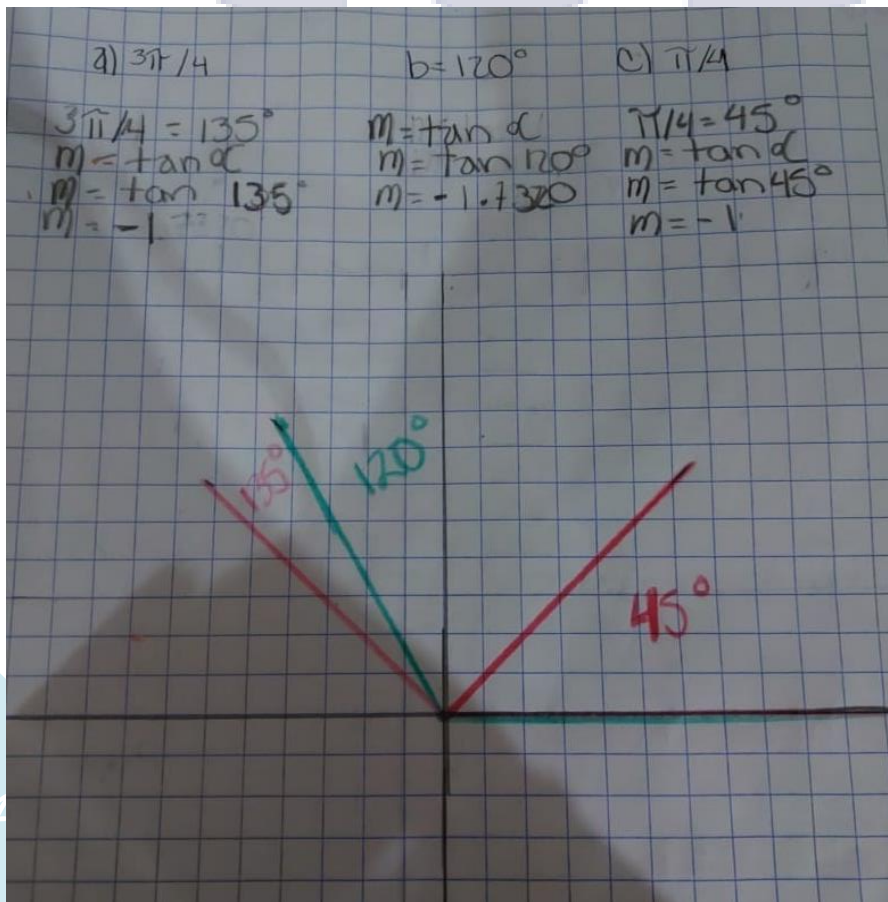 a) 3π/4
3π/4 = 135°
m = tan α
m = tan 135°
m = -1
b = 120°
m = tan α
m = tan 120°
m = -1.7320
c) π/4
π/4 = 45°
m = tan α
m = tan 45°
m = -1
135°
120°
45°